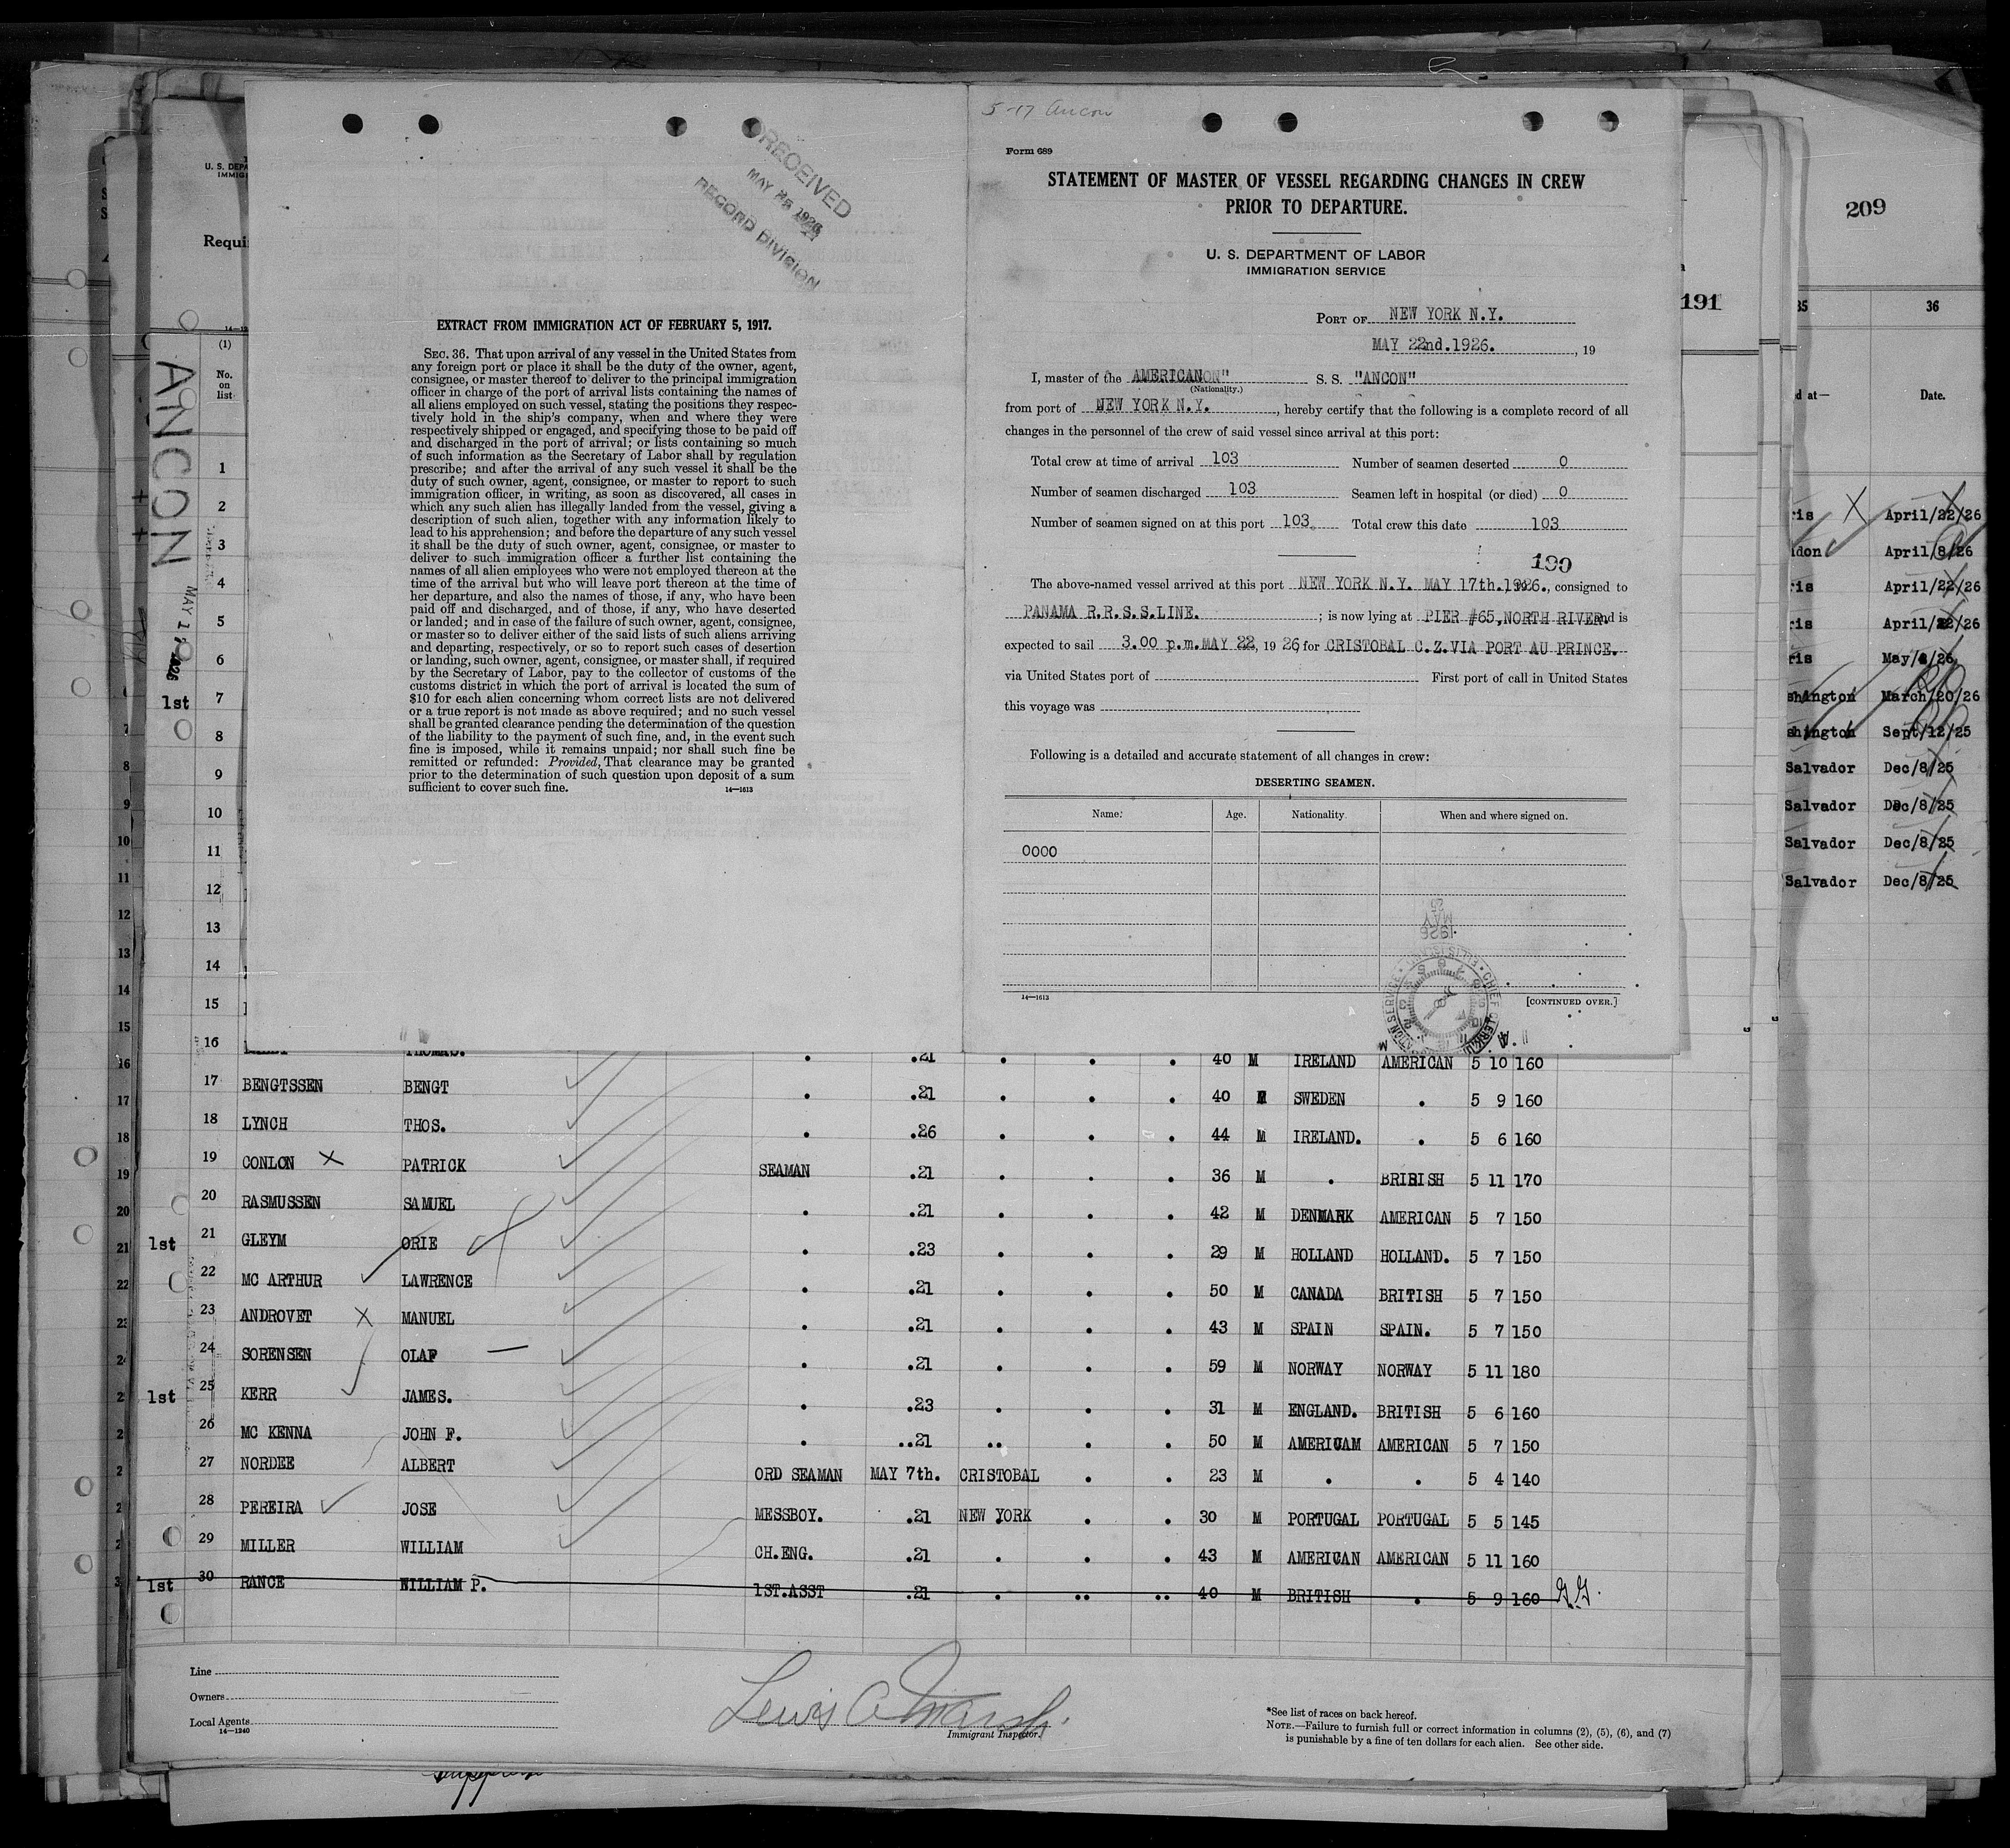 5-17 Ancon
RECEIVED
MAY 25 1926
RECORD DIVISION
EXTRACT FROM IMMIGRATION ACT OF FEBRUARY 5, 1917.
SEC. 36. That upon arrival of any vessel in the United States from
any foreign port or place it shall be the duty of the owner, agent,
consignee, or master thereof to deliver to the principal immigration
officer in charge of the port of arrival lists containing the names of
all aliens employed on such vessel, stating the positions they respec-
tively hold in the ship's company, when and where they were
respectively shipped or engaged, and specifying those to be paid off
and discharged in the port of arrival; or lists containing so much
of such information as the Secretary of Labor shall by regulation
prescribe; and after the arrival of any such vessel it shall be the
duty of such owner, agent, consignee, or master to report to such
immigration officer, in writing, as soon as discovered, all cases in
which any such alien has illegally landed from the vessel, giving a
description of such alien, together with any information likely to
lead to his apprehension; and before the departure of any such vessel
it shall be the duty of such owner, agent, consignee, or master to
deliver to such immigration officer a further list containing the
names of all alien employees who were not employed thereon at the
time of the arrival but who will leave port thereon at the time of
her departure, and also the names of those, if any, who have been
paid off and discharged, and of those, if any, who have deserted
or landed; and in case of the failure of such owner, agent, consignee,
or master so to deliver either of the said lists of such aliens arriving
and departing, respectively, or so to report such cases of desertion
or landing, such owner, agent, consignee, or master shall, if required
by the Secretary of Labor, pay to the collector of customs of the
customs district in which the port of arrival is located the sum of
$10 for each alien concerning whom correct lists are not delivered
or a true report is not made as above required; and no such vessel
shall be granted clearance pending the determination of the question
of the liability to the payment of such fine, and, in the event such
fine is imposed, while it remains unpaid; nor shall such fine be
remitted or refunded: Provided, That clearance may be granted
prior to the determination of such question upon deposit of a sum
sufficient to cover such fine. 14—1613
Form 689
STATEMENT OF MASTER OF VESSEL REGARDING CHANGES IN CREW
PRIOR TO DEPARTURE.
U. S. DEPARTMENT OF LABOR
IMMIGRATION SERVICE
PORT OF NEW YORK N.Y.
MAY 22nd.1926. , 19
I, master of the AMERICAN S. S. "ANCON"
(Nationality.)
from port of NEW YORK N.Y. , hereby certify that the following is a complete record of all
changes in the personnel of the crew of said vessel since arrival at this port:
Total crew at time of arrival 103 Number of seamen deserted 0
Number of seamen discharged 103 Seamen left in hospital (or died) 0
Number of seamen signed on at this port 103. Total crew this date 103
190
The above-named vessel arrived at this port NEW YORK N.Y. MAY 17th.1926., consigned to
PANAMA R.R.S.S.LINE. ; is now lying at PIER #65,NORTH RIVER. and is
expected to sail 3.00 p.m.MAY 22, 19 26, for CRISTOBAL C.Z.VIA PORT AU PRINCE.
via United States port of First port of call in United States
this voyage was
Following is a detailed and accurate statement of all changes in crew:
DESERTING SEAMEN.
Name. Age. Nationality. When and where signed on.
0000
14—1613 [CONTINUED OVER.]
1926
MAY
25
U. S. DEPA
IMMIG
Requi
(1)
No.
on
list
ANCON
MAY 17 1926
1
2
3
4
5
6
1st 7
8
9
10
11
12
13
14
15
16 THOMAS. .21 . . . 40 M IRELAND AMERICAN 5 10 160
17 BENGTSSEN BENGT . .21 . . . 40 M SWEDEN . 5 9 160
18 LYNCH THOS. . .26 . . . 44 M IRELAND. . 5 6 160
19 CONLON X PATRICK SEAMAN .21 . . . 36 M . BRIRISH 5 11 170
20 RASMUSSEN SAMUEL . .21 . . . 42 M DENMARK AMERICAN 5 7 150
1st 21 GLEYM ORIE . .23 . . . 29 M HOLLAND HOLLAND. 5 7 150
22 MC ARTHUR LAWRENCE . .21 . . . 50 M CANADA BRITISH 5 7 150
23 ANDROVET X MANUEL . .21 . . . 43 M SPAIN SPAIN. 5 7 150
24 SORENSEN OLAF . .21 . . . 59 M NORWAY NORWAY 5 11 180
1st 25 KERR JAMES. . .23 . . . 31 M ENGLAND. BRITISH 5 6 160
26 MC KENNA JOHN F. . ..21 .. . . 50 M AMERICAM AMERICAN 5 7 150
27 NORDEE ALBERT ORD SEAMAN MAY 7th. CRISTOBAL . . 23 M . . 5 4 140
28 PEREIRA JOSE MESSBOY. .21 NEW YORK . . 30 M PORTUGAL PORTUGAL 5 5 145
29 MILLER WILLIAM CH.ENG. .21 . . . 43 M AMERICAN AMERICAN 5 11 160
1st 30 RANCE WILLIAM P. 1ST.ASST .21 . .. .. 40 M BRITISH . 5 9 160 G.G.
Line
Owners
Local Agents
14—1240
Lewis A Marsh.
Immigrant Inspector.
*See list of races on back hereof.
NOTE.—Failure to furnish full or correct information in columns (2), (5), (6), and (7)
is punishable by a fine of ten dollars for each alien. See other side.
191
209
35 36
d at— Date.
ris X April/22/26
don April/8/26
ris April/22/26
ris April/22/26
ris May/4/26
shington March/20/26
shington Sept/12/25
Salvador Dec/8/25
Salvador Dec/8/25
Salvador Dec/8/25
Salvador Dec/8/25